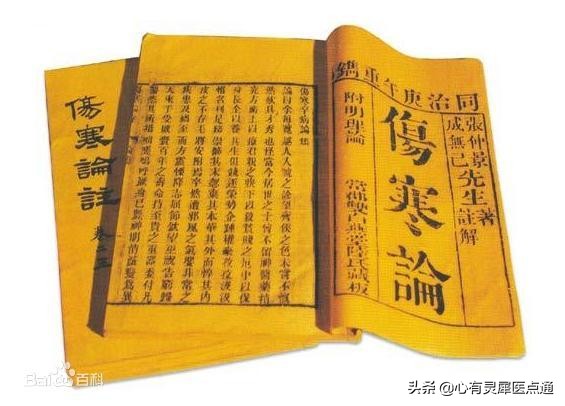 同治庚午重鐫
張仲景先生著
成無己註解
傷寒論
附明理論
常郡雙白燕堂陸氏藏板
傷寒卒病論集
論曰余每覽越人入虢之診望齊侯之色未嘗不慨
然歎其才秀也怪當今居世之士曾不留神醫藥精
究方術上以療君親之疾下以救貧賤之厄中以保
身長全以養其生但競逐榮勢企踵權豪孜孜汲汲
惟名利是務崇飾其末忽棄其本華其外而悴其內
皮之不存毛將安附焉卒然遭邪風之氣嬰非常之
疾患及禍至而方震慄降志屈節欽望巫祝告窮歸
天束手受敗百年之壽命持至貴之重器委付凡
醫恣其所措咄嗟嗚呼厥身已斃神明消滅變為異
傷寒論註
Bai百科
头条 @心有灵犀医点通